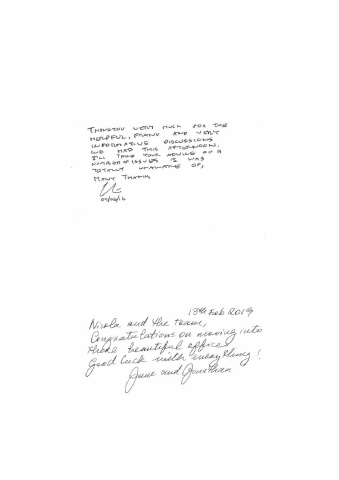 THANKYOU VERY MUCH FOR THE
HELPFUL, FRANK AND VERY
INFORMATIVE DISCUSSIONS
WE HAD THIS AFTERNOON.
I'LL TAKE YOUR ADVICE ON A
NUMBER OF ISSUES I WAS
TOTALLY UNAWARE OF,
MANY THANKS,
13th Feb 2019
Nicola and the team,
Congratulations on moving into
these beautiful offices
Good Luck with everything!
June and Jonathan